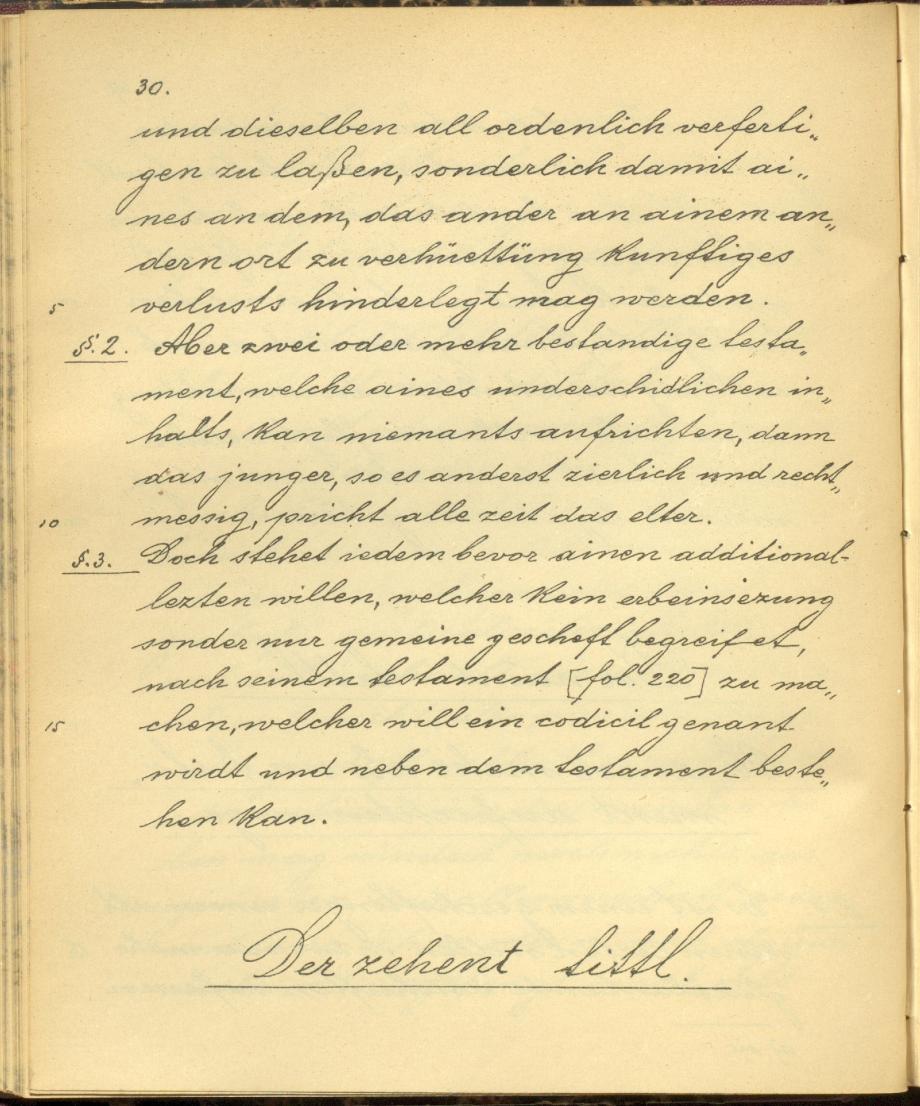 30.
und dieselben all ordenlich verferti„
gen zu laßen, sonderlich damit ai„
nes an dem, das ander an ainem an„
dern ort zu verhüettüng kunfftiges
5 verlusts hinderlegt mag werden.
§§. 2. Aber zwei oder mehr bestandige testa„
ment, welche aines underschidlichen in„
halts, kan niemants aufrichten, dann
das junger, so es anderst zierlich und recht„
10 messig, pricht alle zeit das elter.
§. 3. Doch stehet iedem bevor ainen additional-
lezten willen, welcher kein erbeinsezung
sonder nur gemeine gescheft begreifet,
nach seinem testament [fol. 220] zu ma„
15 chen, welcher will ein codicil genant
wirdt und neben dem testament beste„
hen kan.
Der zehent tittl.